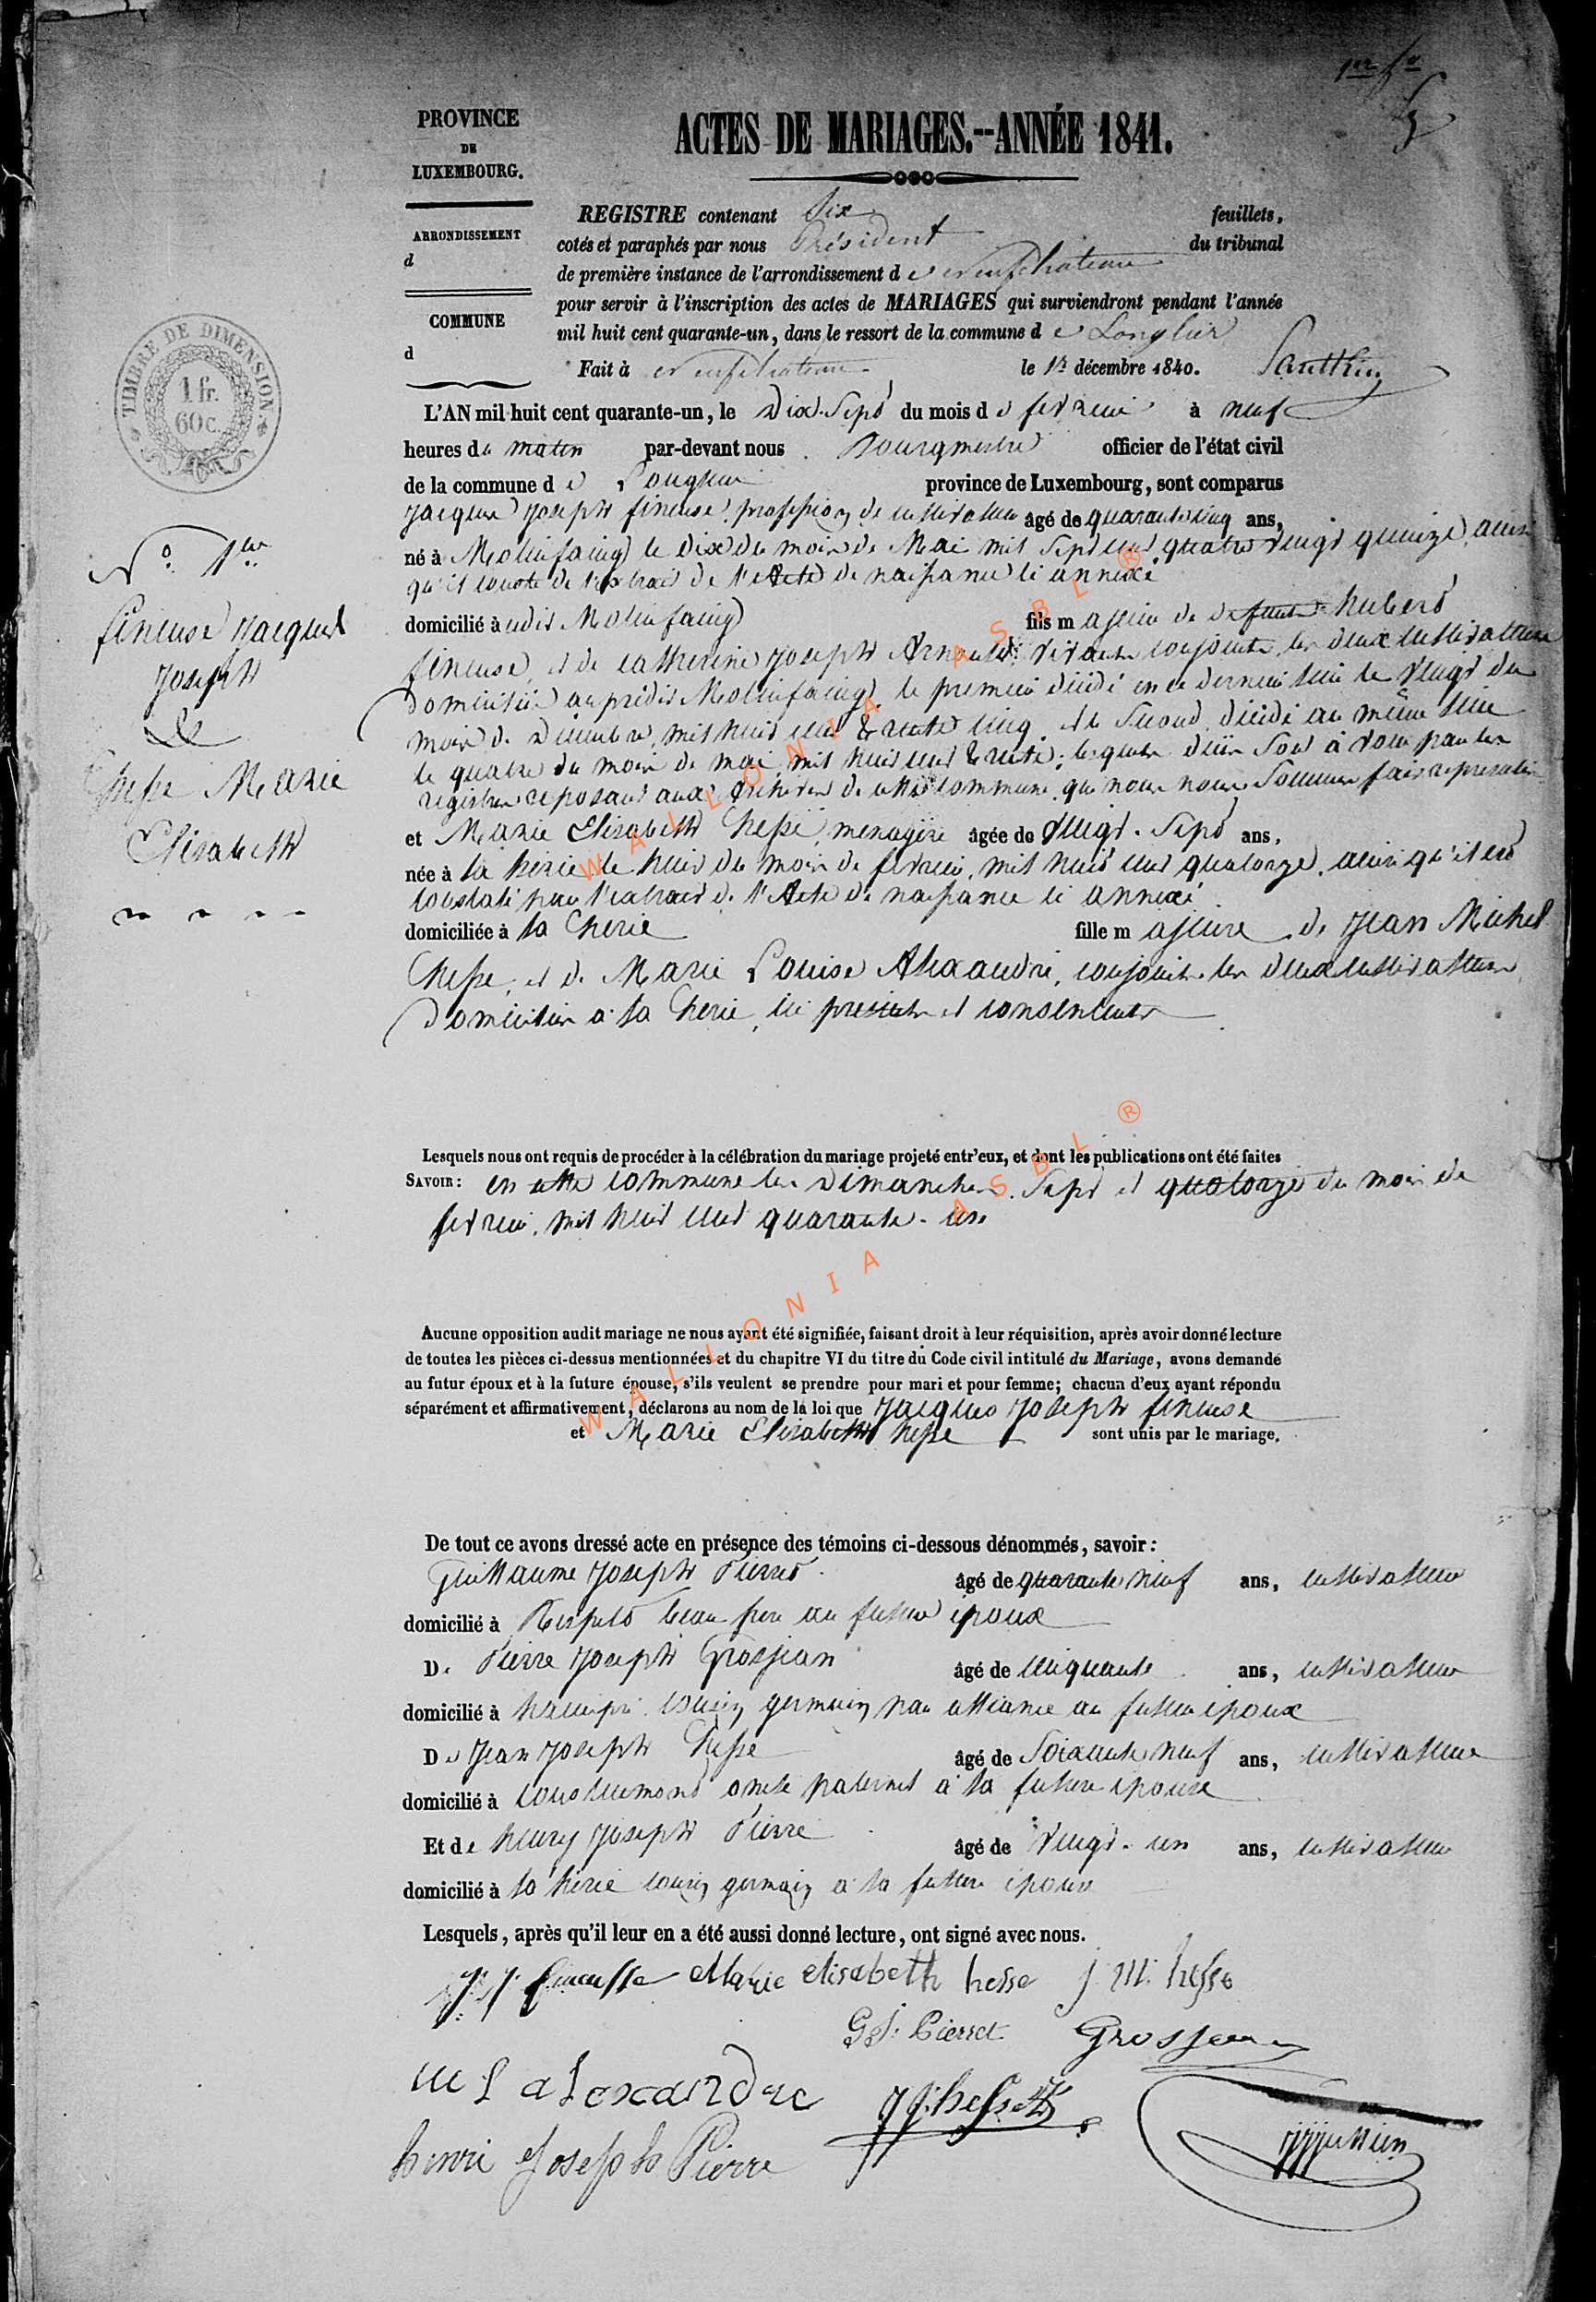 PROVINCE
DE
LUXEMBOURG.
ARRONDISSEMENT
d
COMMUNE
d
TIMBRE DE DIMENSION
1 fr.
60c.
ACTES DE MARIAGES.--ANNÉE 1841.
REGISTRE contenant Six feuillets,
cotés et paraphés par nous Président du tribunal
de première instance de l'arrondissement de Neufchateau
pour servir à l'inscription des actes de MARIAGES qui surviendront pendant l'année
mil huit cent quarante-un, dans le ressort de la commune de Longlier
Fait à Neufchateau le 1r décembre 1840.
L'AN mil huit cent quarante-un, le Dix-Sept du mois de fevrier à neuf
heures du matin par-devant nous Bourgmestre officier de l'état civil
de la commune de Longlier province de Luxembourg, sont comparus
Jacques Joseph fineuse, profession de cultivateur âgé de quarante cinq ans,
né à Molinfaing le dix du mois de Mai mil sept cent quatre vingt quinze, ainsi
qu'il conste de l'extrait de l'Acte de naissance ci annexé
domicilié audit Molinfaing fils majeur de defunts hubert
fineuse, et de catherine Joseph Arnould, vivants conjoints, les deux cultivateurs
domiciliés au prédit Molinfaing, le premier décédé en ce dernier lieu le vingt du
mois de Décembre, mil huit cent trente cinq, et la Seconde, décédé au même lieu
le quatre du mois de mai mil huit cent trente; lesquels décès sont à voir par les
registres reposant aux Archives de cette commune, que nous nous Sommes fait représenter
et Marie Elisabeth hesse, menagère âgée de vingt-Sept ans,
née à la hérie le huit du mois de fevrier, mil huit cent quatorze, ainsi qu'il est
constaté par l'extrait de l'Acte de naissance ci annexé
domiciliée à la hérie fille majeure de Jean Michel
hesse, et de Marie Louise Alexandre, conjoints les deux cultivateurs
domiciliés à la hérie, ici présents et consentants
N° 1er
fineuse Jacques
Joseph
&
hesse Marie
Elisabeth
Lesquels nous ont requis de procéder à la célébration du mariage projeté entr'eux, et dont les publications ont été faites
SAVOIR: en cette commune les Dimanches Sept et quatorze du mois de
fevrier, mil huit cent quarante-un
Aucune opposition audit mariage ne nous ayant été signifiée, faisant droit à leur réquisition, après avoir donné lecture
de toutes les pièces ci-dessus mentionnées et du chapitre VI du titre du Code civil intitulé du Mariage, avons demandé
au futur époux et à la future épouse, s'ils veulent se prendre pour mari et pour femme; chacun d'eux ayant répondu
séparément et affirmativement, déclarons au nom de la loi que Jacques Joseph fineuse
et Marie Elisabeth hesse sont unis par le mariage.
De tout ce avons dressé acte en présence des témoins ci-dessous dénommés, savoir:
Guillaume Joseph Pierret âgé de quarante neuf ans, cultivateur
domicilié à Respelt beau frere au futur époux
De Pierre Joseph Grosjean âgé de cinquante ans, cultivateur
domicilié à cousin germain par alliance au futur époux
De Jean Joseph hesse âgé de Soixante neuf ans, cultivateur
domicilié à Coustumont oncle paternel à la future épouse
Et de henry Joseph Pierre âgé de vingt-un ans, cultivateur
domicilié à la hérie cousin germain à la future épouse
Lesquels, après qu'il leur en a été aussi donné lecture, ont signé avec nous.
J: J fineusse Marie elisabeth hesse J. M. hesse
G J. Pierret Grosjean
M L alexandre J J. hesse
henri Joseph Pierre
WALLONIA ASBL ®
WALLONIA ASBL ®